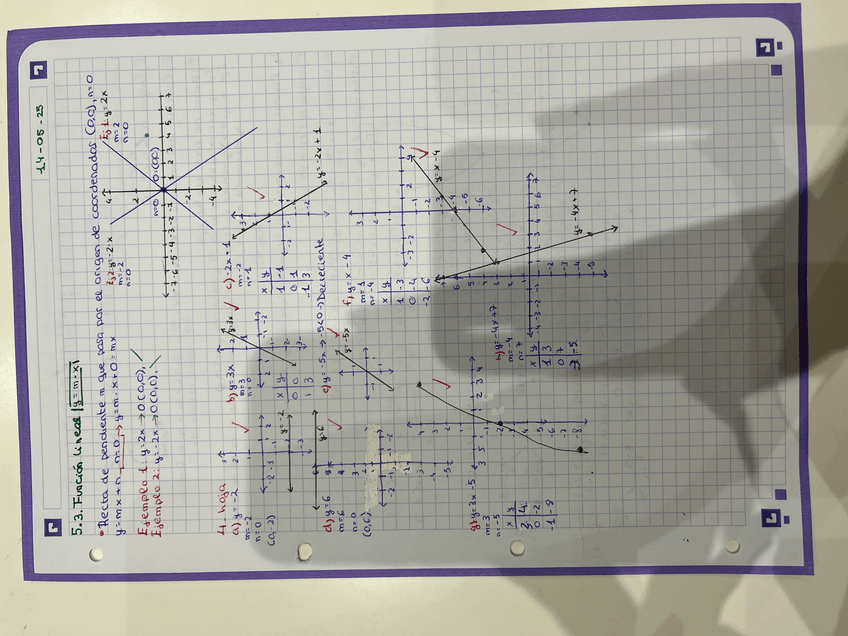 14-05-25
5.3. Función lineal |y=m·x|
• Recta de pendiente m que pasa por el origen de coordenadas (0,0), n=0
y=mx+n → n=0 → y=m·x+0=mx
Ejemplo 1: y=2x → 0(0,0),
Ejemplo 2: y=-2x → 0(0,0),
Ej 2: y=-2x
m=-2
n=0
Ej 1: y=2x
m=2
n=0
m=0 0(0,0)
4
2
-2
-4
-7-6-5-4-3-2-1 1 2 3 4 5 6 7
4. hoja
a) y=-2
m=-2
n=0
(0,-2)
y=-2
b) y=3x
m=3
n=0
x y
0 0
1 3
y=3x
c) -2x+1
m=-2
n=1
x y
1 -1
0 1
-1 3
y=-2x+1
d) y=6
m=6
n=0
(0,6)
y=6
e) y=-5x → -5<0 → Decreciente
y=-5x
f) y=x-4
m=1
n=-4
x y
1 -3
0 -4
-2 -6
y=x-4
g) y=3x-5
m=3
n=-5
x y
0 -2
-1 -9
h) y=-4x+7
m=-4
n=7
x y
1 3
0 7
3 -5
y=-4x+7